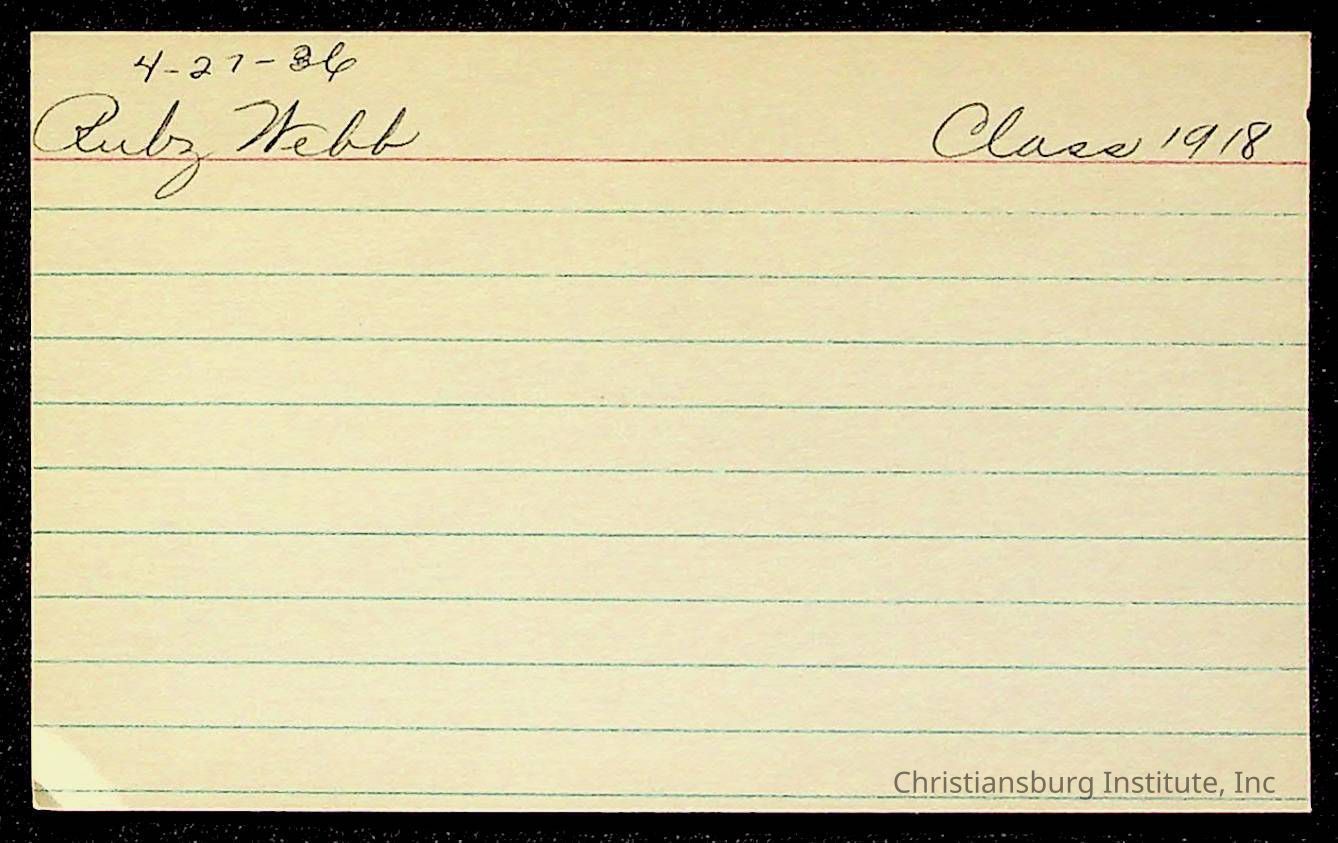 4-27-36
Ruby Webb Class 1918
Christiansburg Institute, Inc